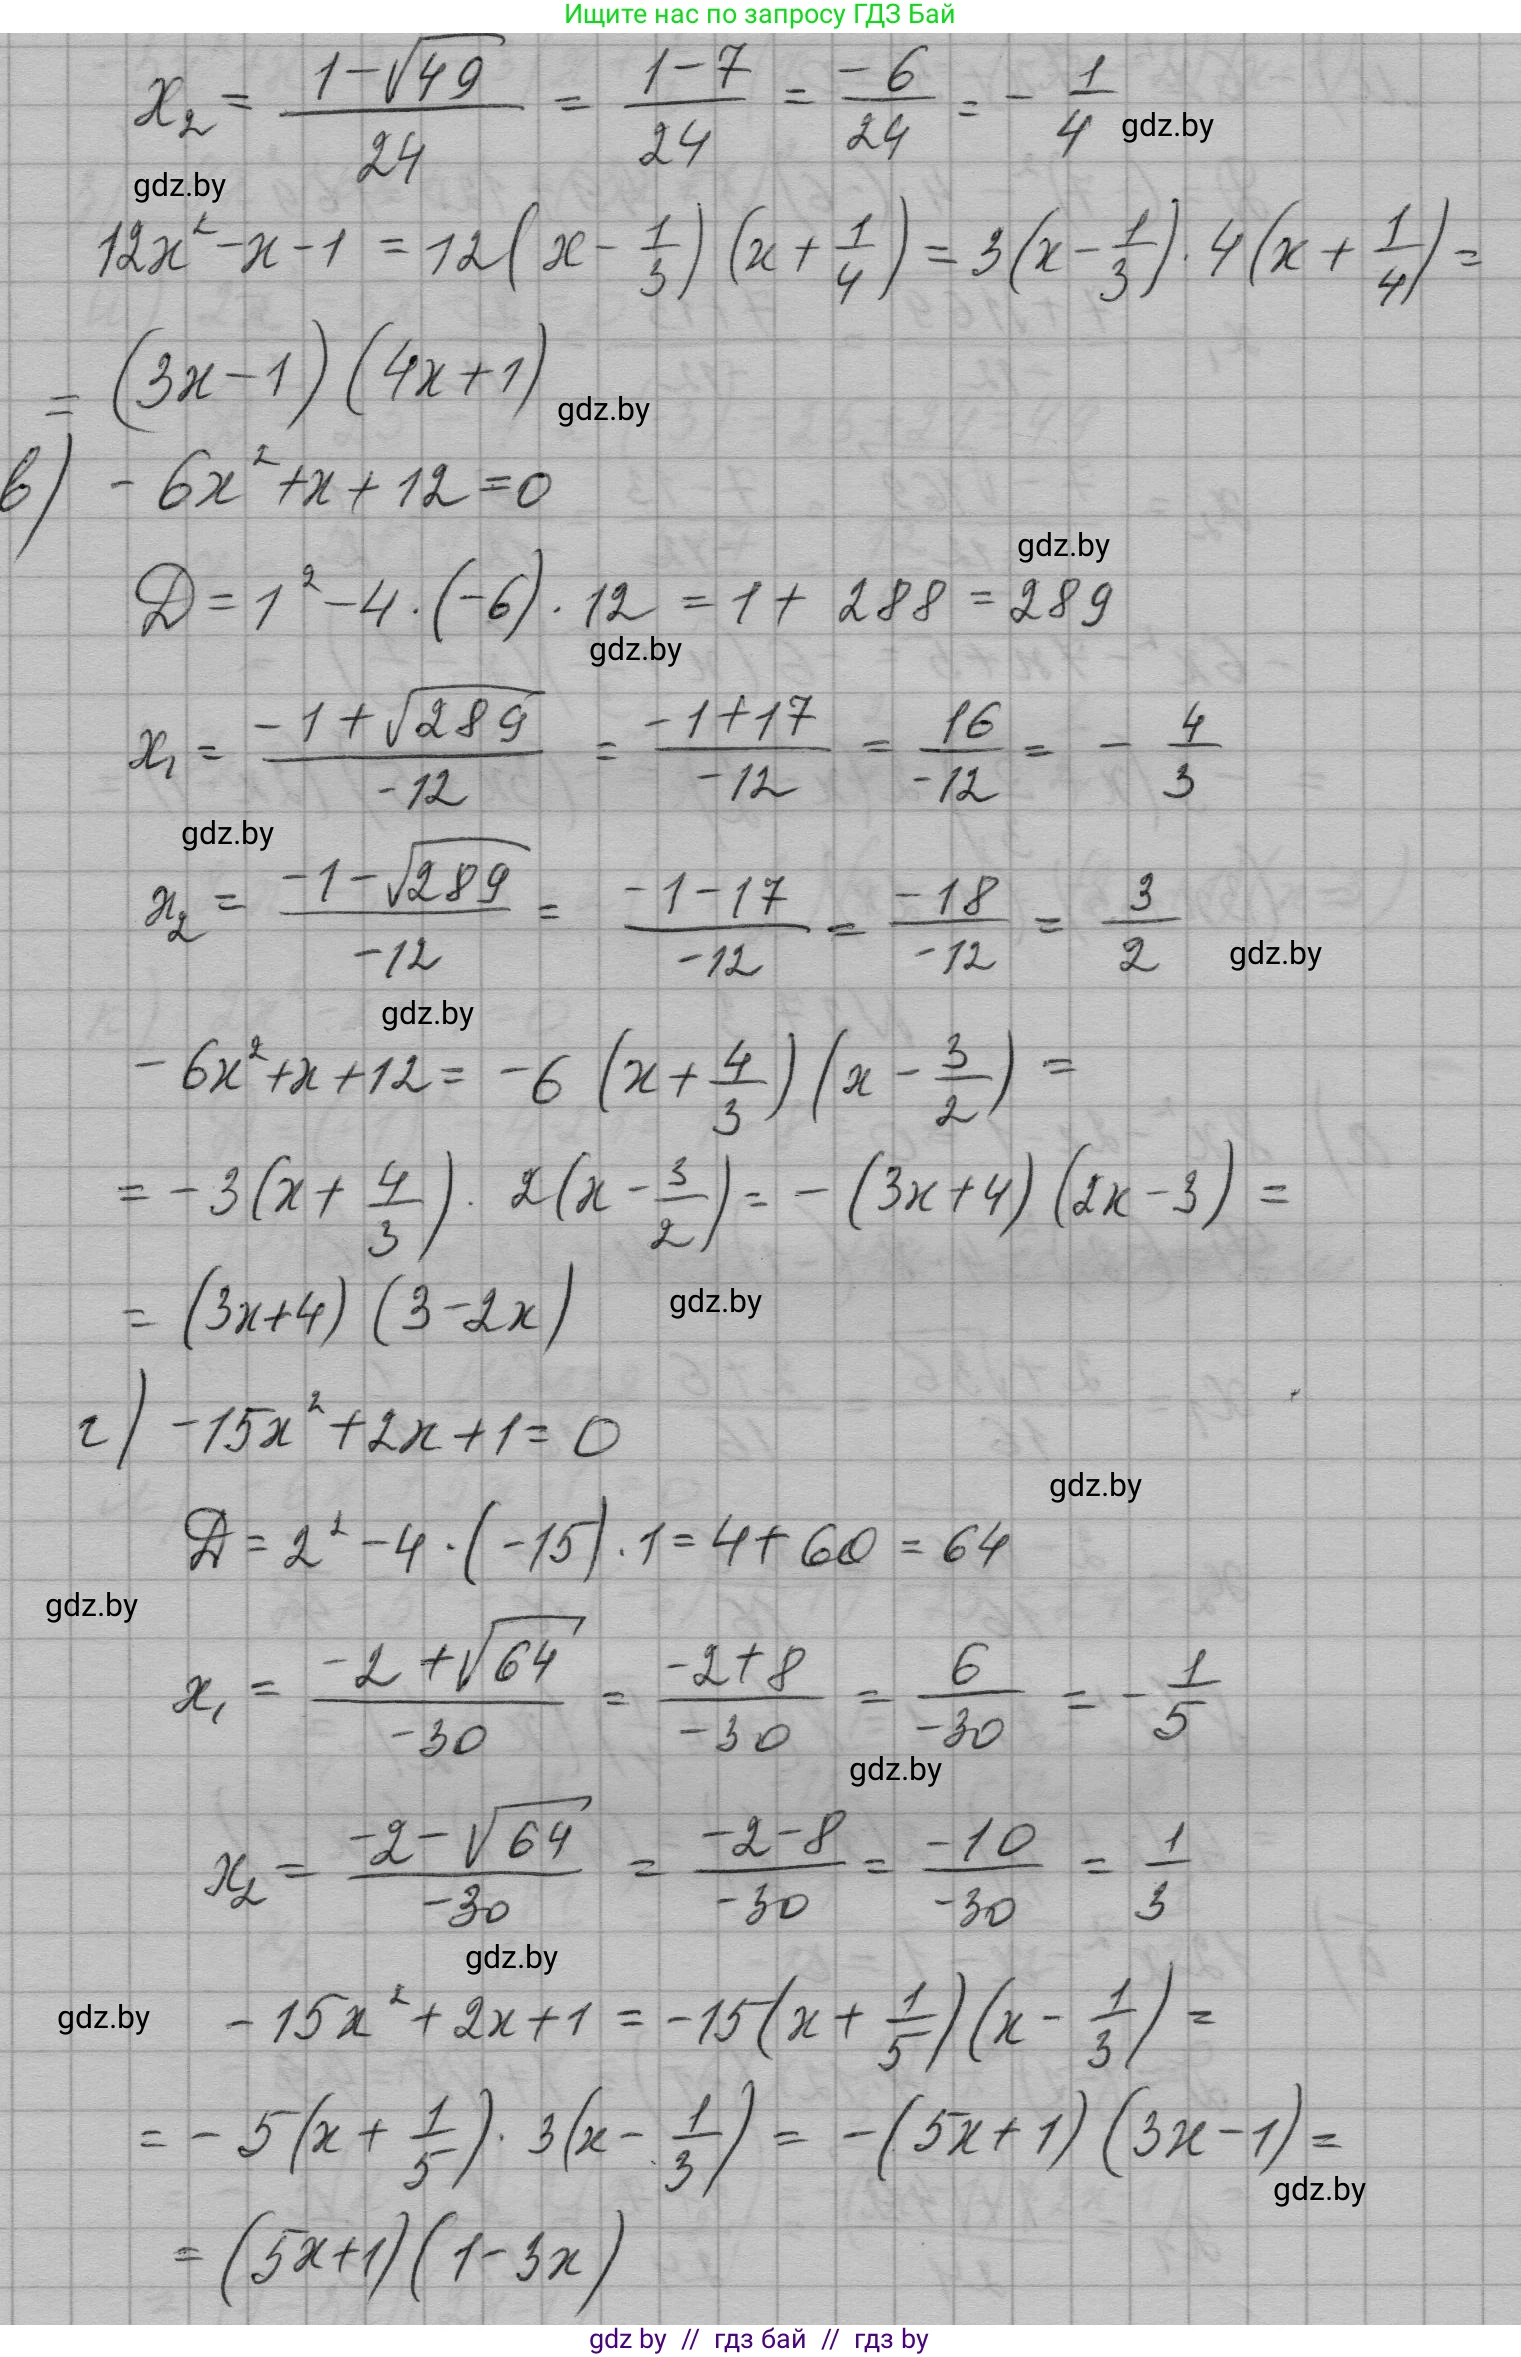 Ищите нас по запросу ГДЗ Бай
x₂ = (1-√49)/24 = (1-7)/24 = -6/24 = - 1/4 gdz.by
gdz.by
12x²-x-1 = 12(x - 1/3)(x + 1/4) = 3(x - 1/3) · 4(x + 1/4) =
= (3x-1)(4x+1) gdz.by
в) - 6x² + x + 12 = 0
gdz.by
D = 1² - 4 · (-6) · 12 = 1 + 288 = 289
gdz.by
x₁ = (-1+√289)/-12 = (-1+17)/-12 = 16/-12 = - 4/3
gdz.by
x₂ = (-1-√289)/-12 = (-1-17)/-12 = -18/-12 = 3/2 gdz.by
gdz.by
- 6x² + x + 12 = -6 (x + 4/3)(x - 3/2) =
= - 3(x + 4/3) · 2(x - 3/2) = - (3x+4)(2x-3) =
= (3x+4)(3-2x) gdz.by
г) -15x² + 2x + 1 = 0
gdz.by
D = 2² - 4 · (-15) · 1 = 4 + 60 = 64
gdz.by
x₁ = (-2+√64)/-30 = (-2+8)/-30 = 6/-30 = - 1/5
gdz.by
x₂ = (-2-√64)/-30 = (-2-8)/-30 = -10/-30 = 1/3
gdz.by
gdz.by - 15x² + 2x + 1 = -15(x + 1/5)(x - 1/3) =
= - 5(x + 1/5) · 3(x - 1/3) = -(5x+1)(3x-1) =
gdz.by
= (5x+1)(1-3x)
gdz by // гдз бай // гдз by